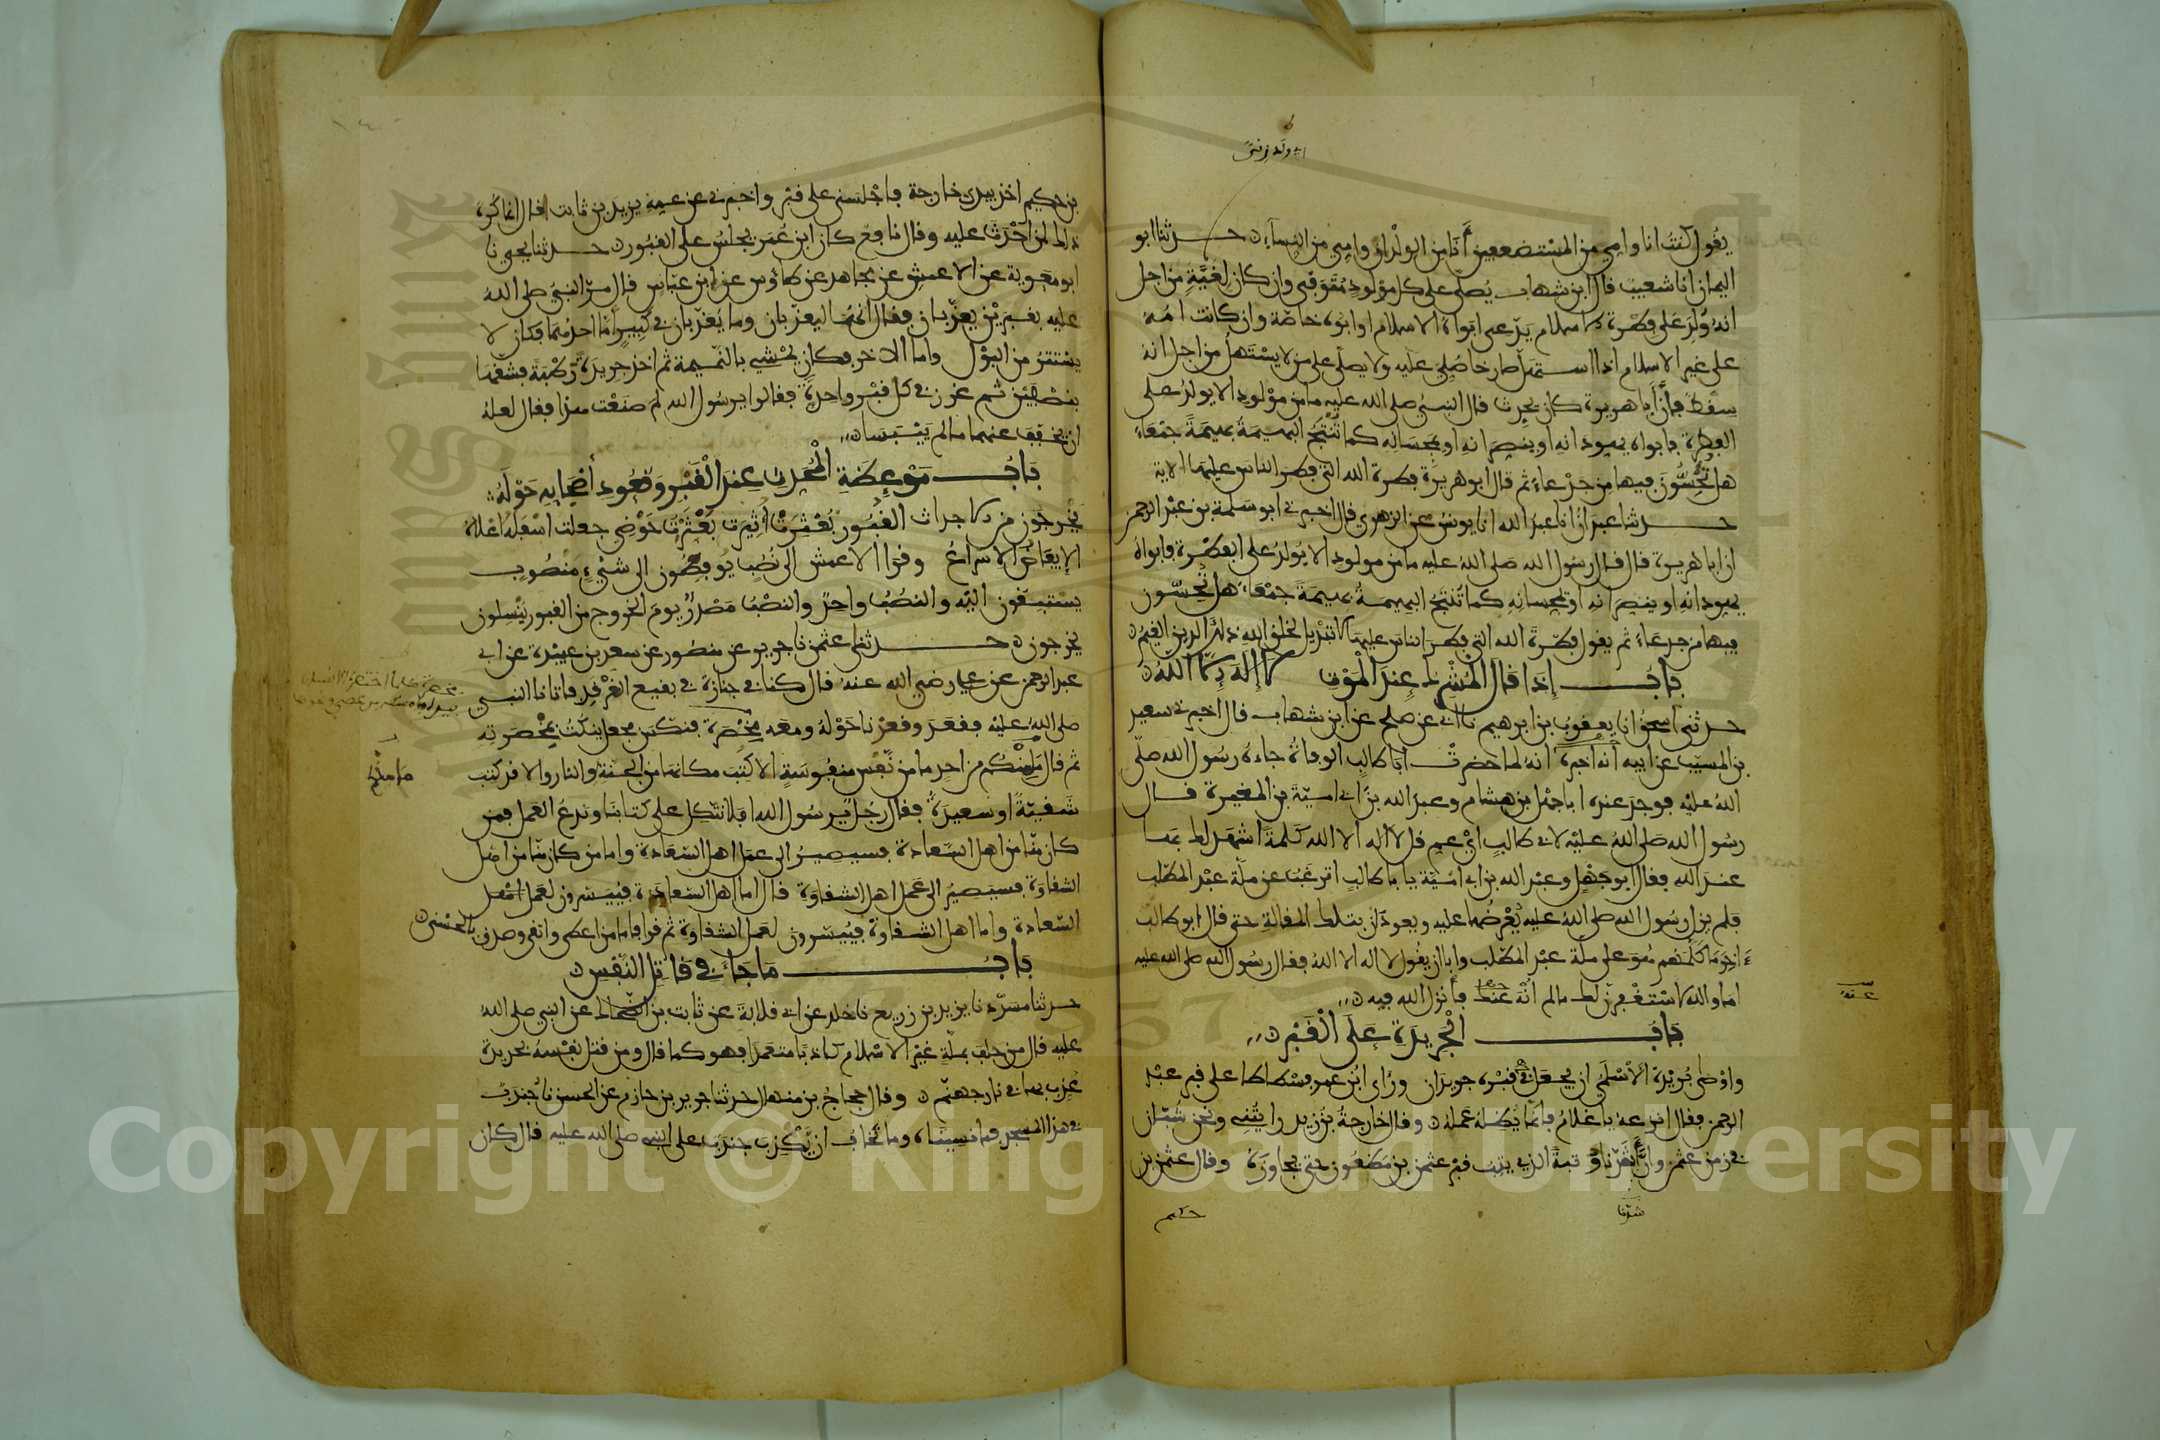 يقول كنت انا وامي من المستضعفين أنا من الولدان وامي من النساء حدثنا ابو
اليمان انا شعيب قال ابن شهاب يصلى على كل مولود متوفى وان كان لغية من اجل
انه ولد على فطرة الاسلام يدعي ابواه الاسلام او ابوه خاصة وان كانت امه
على غير الاسلام اذا استهل صارخا صلي عليه ولا يصلى على من لا يستهل من اجل انه
سقط فإن أبا هريرة كان يحدث قال النبي صلى الله عليه ما من مولود الا يولد على
الفطرة فابواه يهودانه او ينصرانه او يمجسانه كما تنتج البهيمة بهيمة جمعاء
هل تحسون فيها من جدعاء ثم قال ابو هريرة فطرة الله التي فطر الناس عليها الاية
حدثنا عبدان انا عبد الله انا يونس عن الزهري قال اخبرني ابو سلمة بن عبد الرحمن
ان ابا هريرة قال قال رسول الله صلى الله عليه ما من مولود الا يولد على الفطرة فابواه
يهودانه او ينصرانه او يمجسانه كما تنتج البهيمة بهيمة جمعاء هل تحسون
فيها من جدعاء ثم يقول فطرة الله التي فطر الناس عليها لا تبديل لخلق الله ذلك الدين القيم
باب إذا قال المشرك عند الموت لا إله إلا الله
حدثني اسحق انا يعقوب بن ابرهيم نا ابي عن صلح عن ابن شهاب قال اخبرني سعيد
بن المسيب عن ابيه أنه اخبره انه لما حضرت ابا طالب الوفاة جاءه رسول الله صلى
الله عليه فوجد عنده ابا جهل بن هشام وعبد الله بن ابي امية بن المغيرة قال
رسول الله صلى الله عليه لابي طالب اي عم قل لا اله الا الله كلمة اشهد لك بها
عند الله فقال ابو جهل وعبد الله بن ابي امية يا با طالب اترغب عن ملة عبد المطلب
فلم يزل رسول الله صلى الله عليه يعرضها عليه ويعودان بتلك المقالة حتى قال ابو طالب
ءاخر ما كلمهم هو على ملة عبد المطلب وابا ان يقول لا اله الا الله فقال رسول الله صلى الله عليه
اما والله لاستغفرن لك ما لم انه عنك فأنزل الله فيه
عنه
باب الجريدة على القبر
واوصى بريدة الأسلمي ان يجعل في قبره جريدان ورأى ابن عمر فسطاطا على قبر عبد
الرحمن فقال انزعه يا غلام فإنما يظله عمله وقال خارجة بن زيد رايتني ونحن شبان
في زمن عثمن وان أشدنا وثبة الذي يثب قبر عثمن بن مظعون حتى يجاوزه وقال عثمن بن
حكيم
بن حكيم اخذ بيدي خارجة فاجلسني على قبر واخبرني عن عمه يزيد بن ثابت قال انما كره
ذلك لمن احدث عليه وقال نافع كان ابن عمر يجلس على القبور حدثنا يحيى نا
ابو معوية عن الاعمش عن مجاهد عن طاوس عن ابن عباس قال مر النبي صلى الله
عليه بقبرين يعذبان فقال انهما ليعذبان وما يعذبان في كبير أما احدهما فكان لا
يستتر من البول واما الاخر فكان يمشي بالنميمة ثم اخذ جريدة رطبة فشقها
بنصفين ثم غرز في كل قبر واحدة فقالوا يرسول الله لم صنعت هذا فقال لعله
ان يخفف عنهما ما لم ييبسا
باب موعظة المحدث عند القبر وقعود أصحابه حوله
يخرجون من الاجداث القبور بعثرت أثيرت بعثرت حوضي جعلت اسفله اعلاه
الايفاض الاسراع وقرا الاعمش الى نصب يوفضون الى شيء منصوب
يستبقون اليه والنصب واحد والنصب مصدر يوم الخروج من القبور ينسلون
يخرجون حدثني عثمن نا جرير عن منصور عن سعد بن عبيدة عن ابي
عبد الرحمن عن علي رضي الله عنه قال كنا في جنازة في بقيع الغرقد فاتانا النبي
صلى الله عليه فقعد وقعدنا حوله ومعه مخصرة فنكس فجعل ينكت بمخصرته
ثم قال ما منكم من احد ما من نفس منفوسة الا كتب مكانها من الجنة والنار والا قد كتب
شقية او سعيدة فقال رجل يرسول الله افلا نتكل على كتابنا وندع العمل فمن
كان منا من اهل السعادة فسيصير الى عمل اهل السعادة واما من كان منا من اهل
الشقاوة فسيصير الى عمل اهل الشقاوة قال اما اهل السعادة فييسرون لعمل اهل
السعادة واما اهل الشقاوة فييسرون لعمل الشقاوة ثم قرا فاما من اعطى واتقى وصدق بالحسنى
باب ما جاء في قاتل النفس
حدثنا مسدد نا يزيد بن زريع نا خلد عن ابي قلابة عن ثابت بن الضحاك عن النبي صلى الله
عليه قال من حلف بملة غير الاسلام كاذبا متعمدا فهو كما قال ومن قتل نفسه بحديدة
عذب بها في نار جهنم وقال حجاج بن منهال حدثنا جرير بن حازم عن الحسن نا جندب
في هذا المسجد فما نسيناه وما نخاف ان يكذب جندب على النبي صلى الله عليه قال كان
Copyright © King Saud University
1957